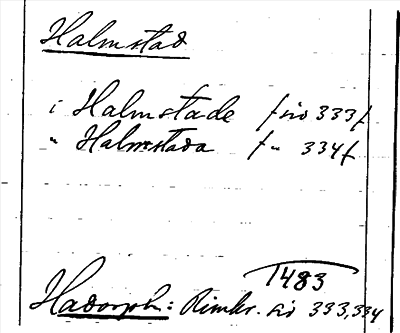 Halmstad
i Halmstade f sid 333 f
" Halmstada f " 334 f
1483
Hadorph: Rimkr. sid 333, 334